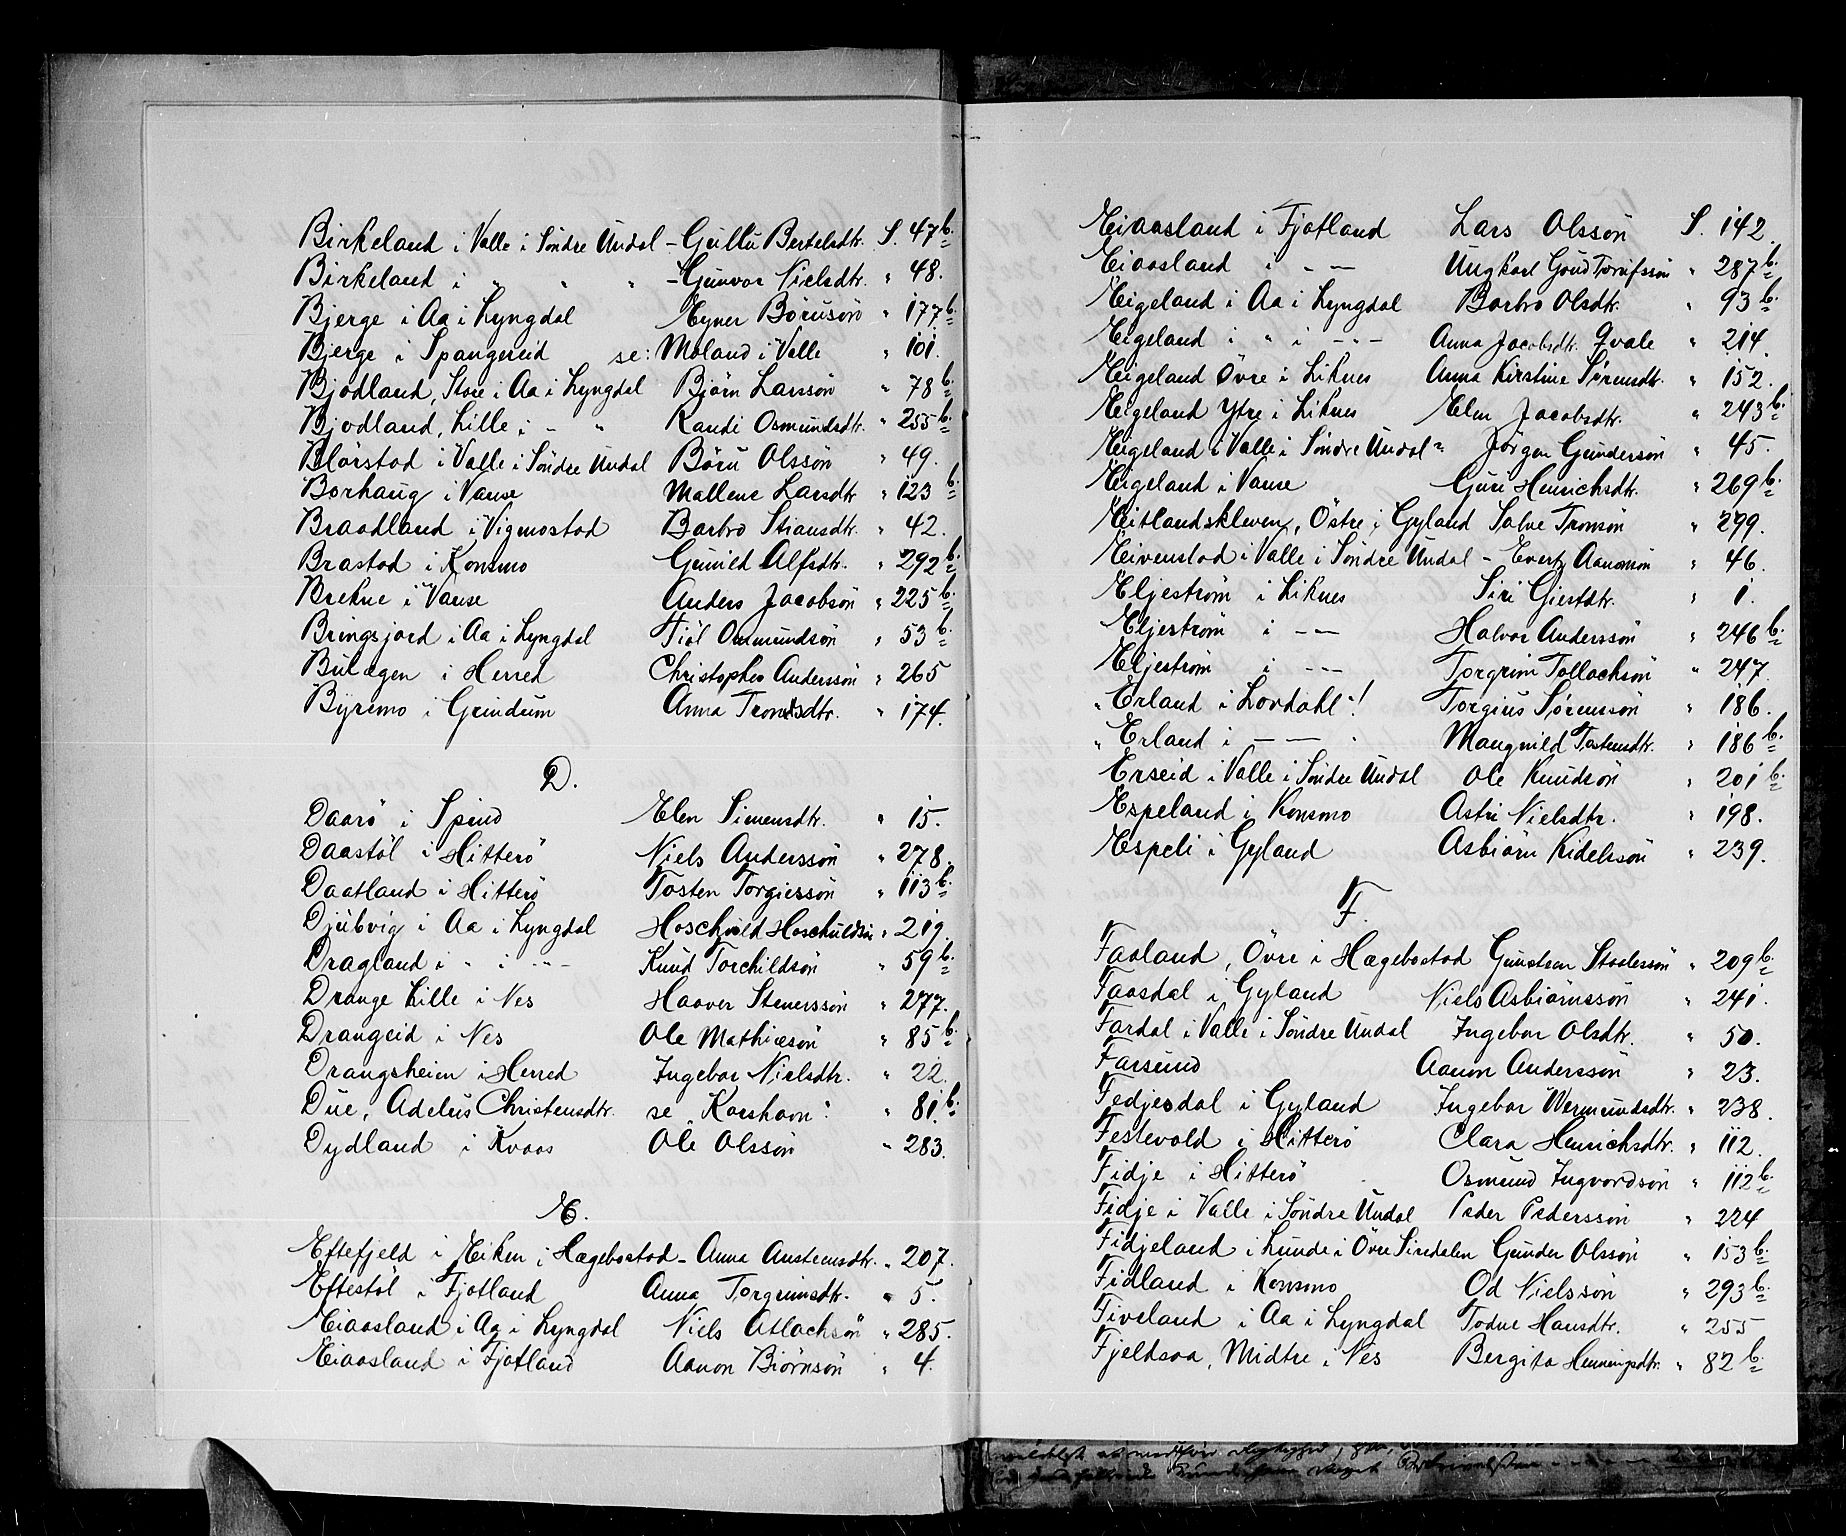 Birkeland i Valle i Söndre Undal - Gullu Bertelsdtr. S. 47 b.
Birkeland i " " " - Gunvor Nielsdtr. " 48.
Bjerge i Aa i Lyngdal Eyner Börusön " 177 b.
Bjerge i Spangereid se: Moland i Valle " 101.
Bjodland, Store i Aa i Lyngdal Björn Larssön " 78 b.
Bjodland, Lille i - " Randi Osmundsdtr. " 255 b.
Blörstad i Valle i Söndre Undal Böru Olssön " 49.
Borhaug i Vanse Mallene Larsdtr " 123 b.
Braadland i Vigmostad Barbro Stiansdtr. " 42.
Brastad i Konsmo Gunild Alfsdtr. " 292 b.
Brekne i Vanse Anders Jacobsön " 225 b.
Bringsjord i Aa i Lyngdal Tiöl Osmundsön " 53 b.
Bulægen i Herred Christopher Anderssön " 265
Byremo i Grindum Anna Trondsdtr. " 174.
D.
Daarö i Spind Elen Simensdtr. " 15.
Daastöl i Hitterö Niels Anderssön " 278.
Daatland i Hitterö Tosten Torgierssön " 113 b.
Djubvig i Aa i Lyngdal Hoschuld Hoschuldsön " 219.
Dragland i " i - - - Knud Torchildsön " 59 b.
Drange Lille i Nes Haaver Stenerssön " 277.
Drangeid i Nes Ole Mathiesön " 85 b.
Drangsheim i Herred Ingebor Nielsdtr. " 22.
Due, Adelus Christensdtr. se "Korshavn". " 81. b.
Dydland i Kvaas Ole Olssön " 283.
E.
Eftefjeld i Eiken i Hægebostad - Anna Anstensdtr. " 207.
Eftestöl i Fjotland Anna Torgrimsdtr. " 5.
Eiaasland i Aa i Lyngdal Niels Atlachsön " 285.
Eiaasland i Fjotland Aanon Björnsön " 4.
Eiaasland i Fjotland Lars Olssön S. 142.
Eiaasland i - — Ungkarl Goud " 287 b.
Eigeland i Aa i Lyngdal Barbro Olsdtr. " 93 b.
Eigeland i " i - - - Anna Jacobsdtr. Qvale " 214.
Eigeland Övre i Liknes Anna Kirstine Sörensdtr. " 152.
Eigeland Ytre i Liknes Elen Jacobsdtr. " 243 b.
Eigeland i Valle i Söndre Undal " Jörgen Gundersön " 45.
Eigeland i Vanse Guri Henrichsdtr. " 269 b.
Eitlandskleven, Östre i Gyland Salve Tronsön " 299.
Eivenstad i Valle i Söndre Undal - Evert Aanonsön " 46.
Eljeström i Liknes Siri Giestdtr. " 1.
Eljeström i - — Halvor Anderssön " 246 b.
Eljeström i - - - Torgrim Tollachsön " 247.
"Erland i Lovdahl"! Torgius Sørenssön " 186.
"Erland i — — . Mangnild Tostensdtr. " 186 b.
Erseid i Valle i Söndre Undal Ole Knudsön " 201 b.
Espeland i Konsmo Astri Nielsdtr. " 198.
Espeli i Gyland Asbiörn Kidelssön " 239.
F.
Faoland, Övre i Hægebostad Gunsteen Staalessön " 209 b.
Faasdal i Gyland Niels Asbiörnssön " 241.
Fardal i Valle i Söndre Undal Ingebor Olsdtr. " 50.
Farsund Aanon Anderssön " 23.
Fedjesdal i Gyland Ingebor Wermundsdtr. " 238.
Festevold i Hitterö Clara Henrichsdtr. " 112.
Fidje i Hitterö Osmund Ingvordsön " 112 b.
Fidje i Valle i Söndre Undal Peder Pederssön " 224
Fidjeland i Lunde i Övre Siredalen Gunder Olssön " 153 b.
Fidland i Konsmo Od Nielssön " 293 b.
Fiveland i Aa i Lyngdal Todne Hansdtr. " 255
Fjeldsaa, Midtre i Nes Bergita Henningsdtr. " 82 b.